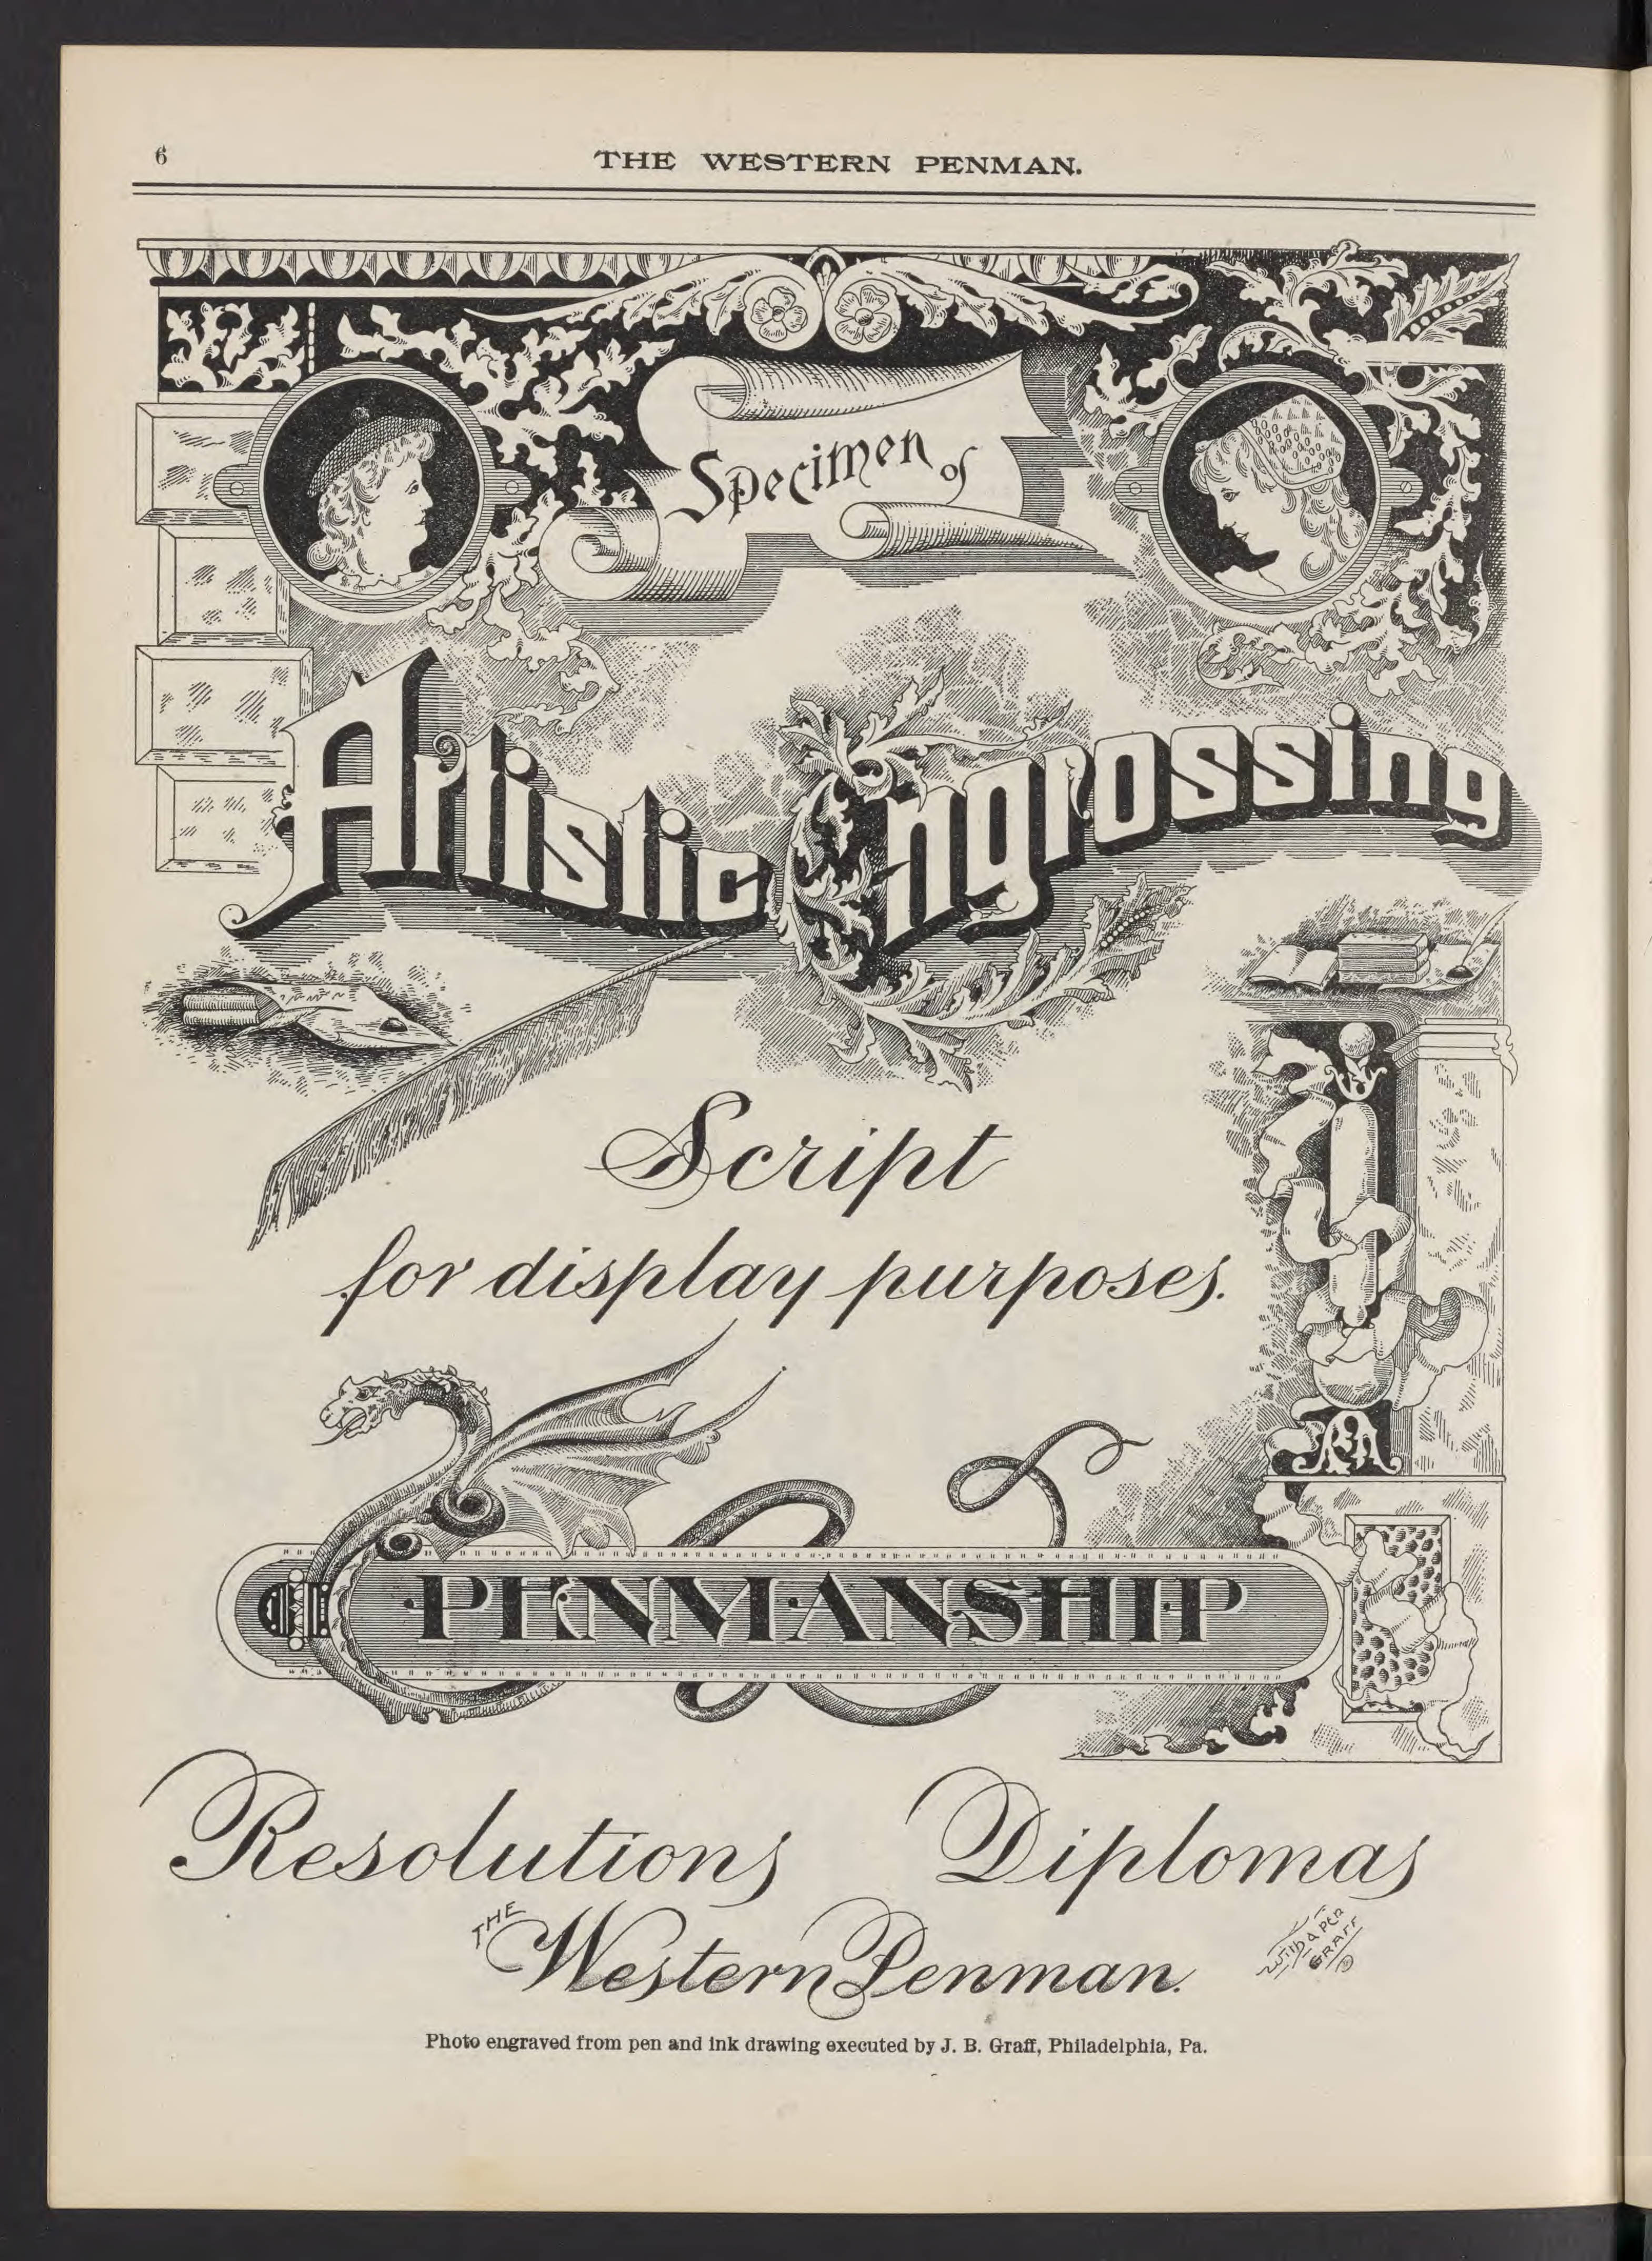 6
THE WESTERN PENMAN.
Specimen of
Artistic Engrossing
Script
for display purposes.
PENMANSHIP
Resolutions Diplomas
THE
Western Penman.
WITH A PEN
GRAFF
Photo engraved from pen and ink drawing executed by J. B. Graff, Philadelphia, Pa.